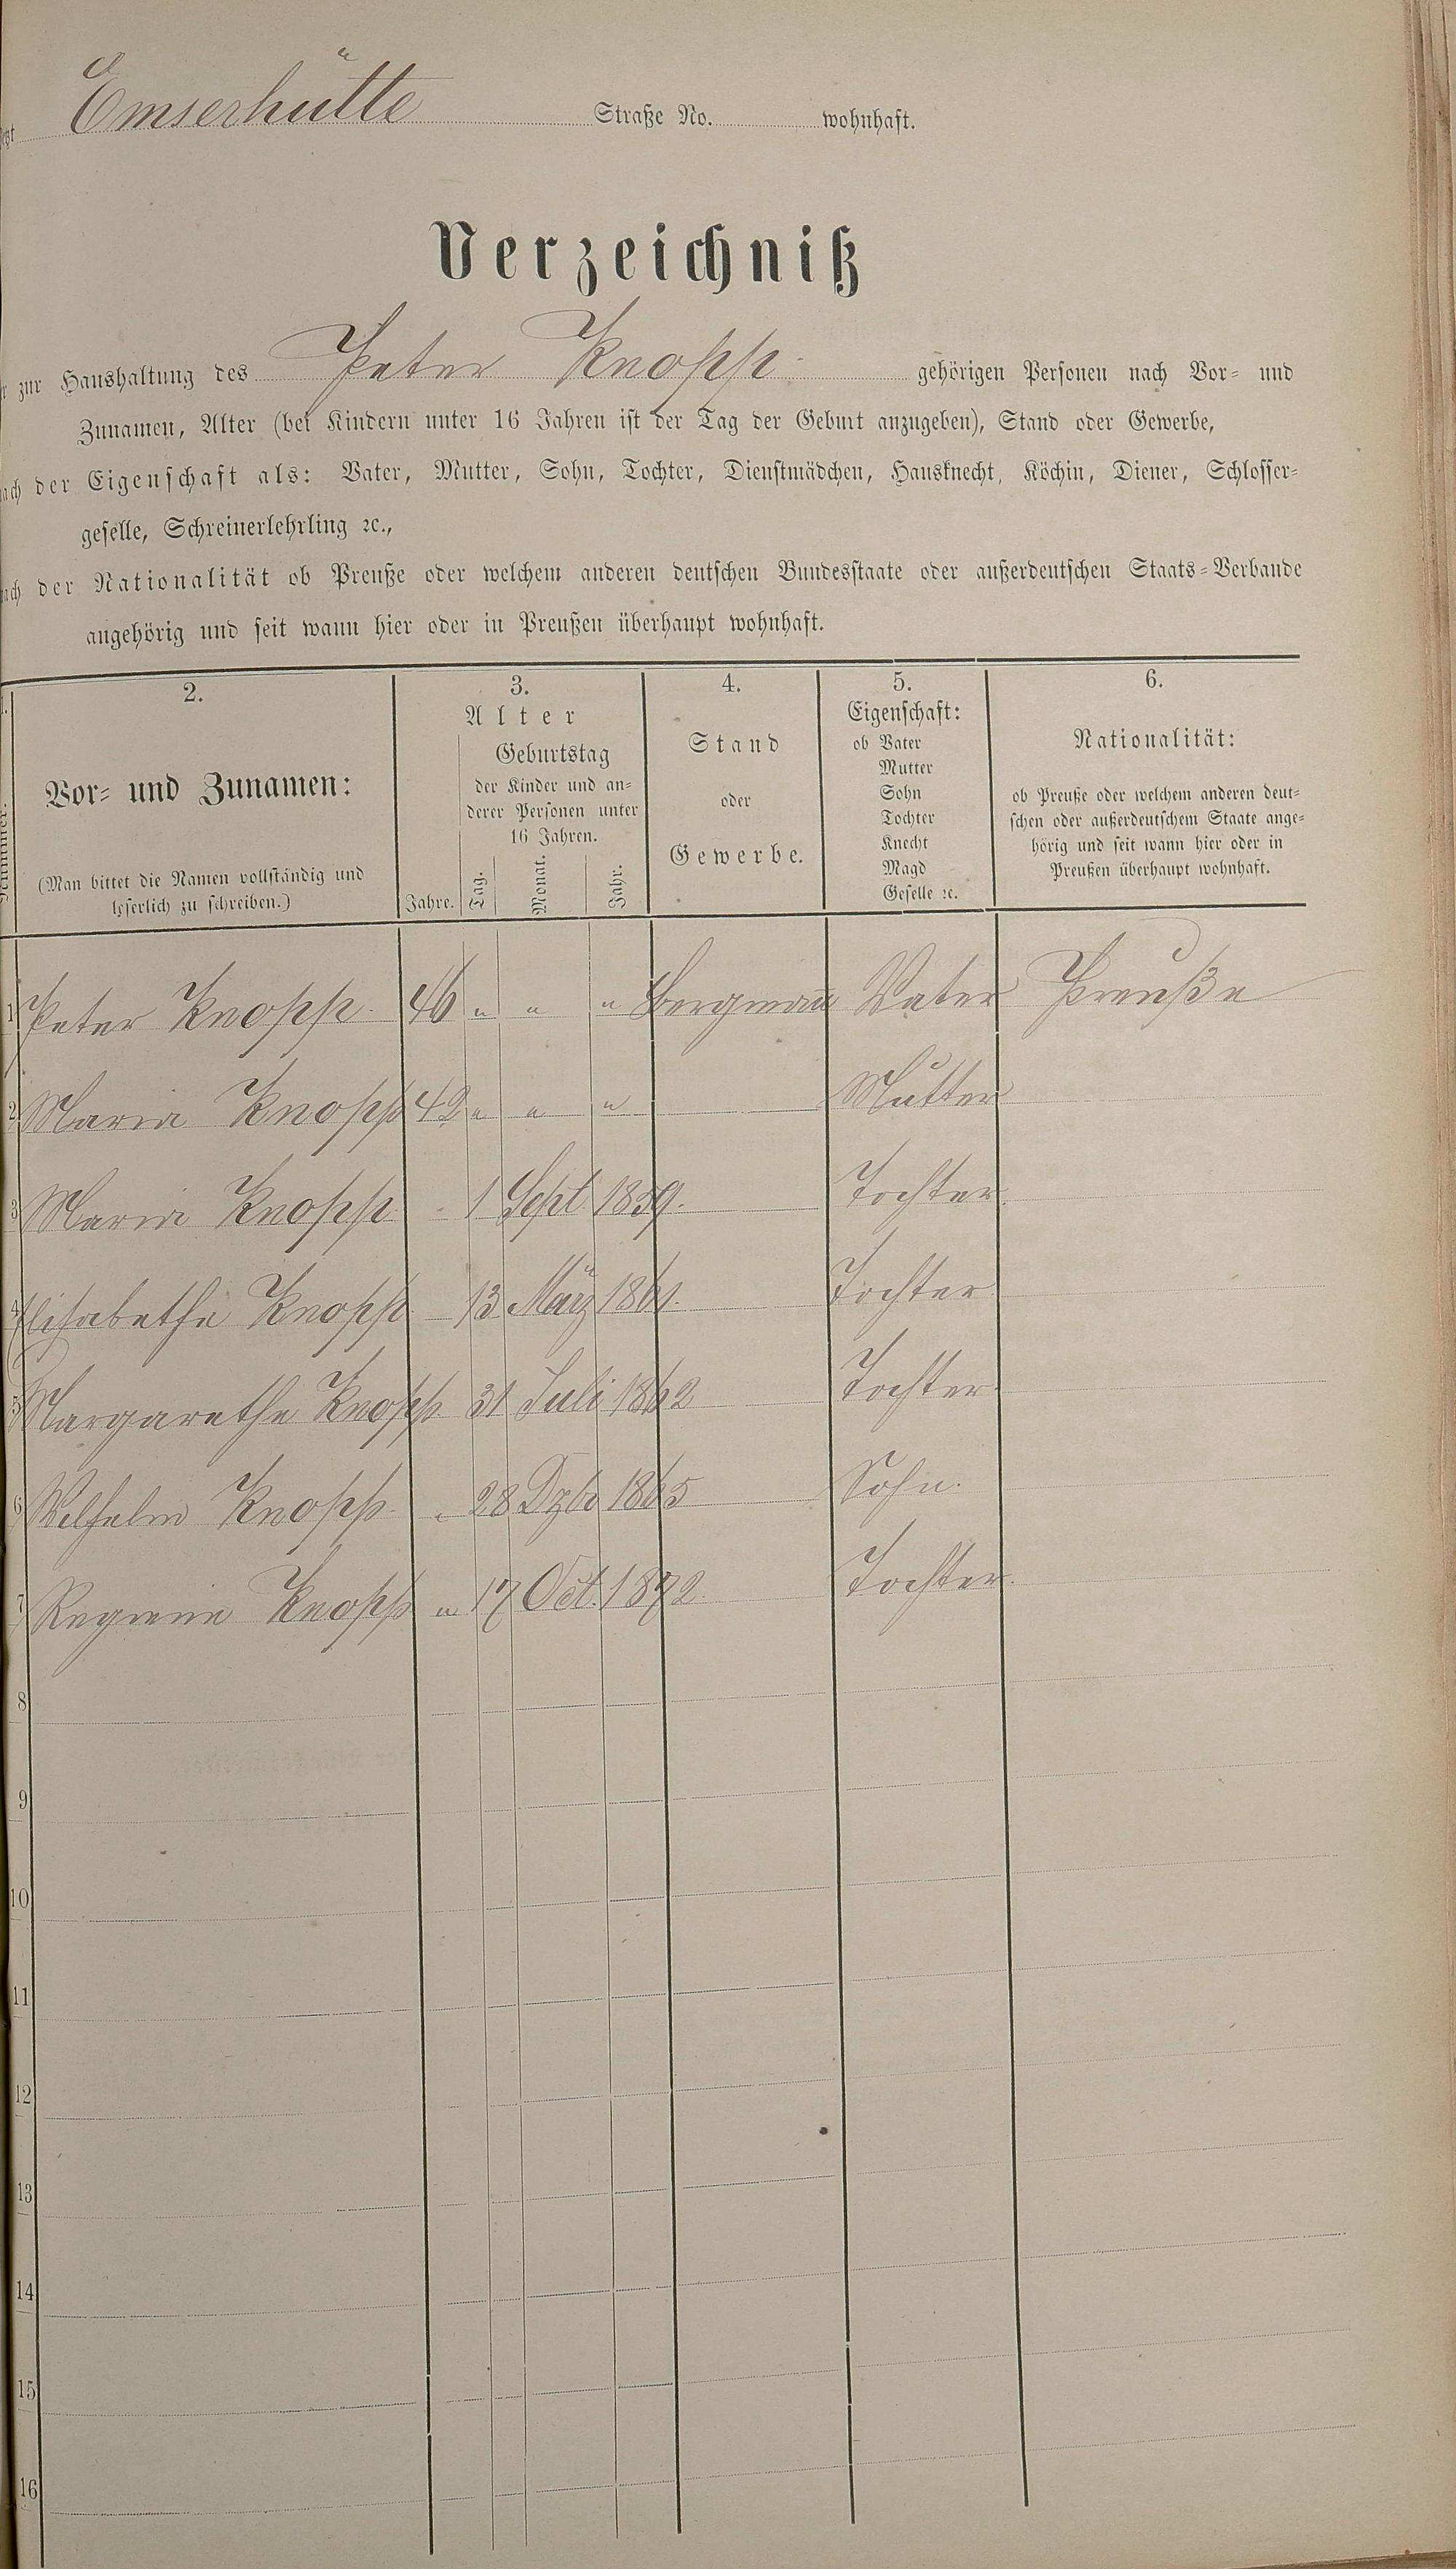 Emserhütte Straße No. wohnhaft.
Verzeichniß
zur Haushaltung des Peter Knopp. gehörigen Personen nach Vor- und
Zunamen, Alter (bei Kindern unter 16 Jahren ist der Tag der Geburt anzugeben), Stand oder Gewerbe,
der Eigenschaft als: Vater, Mutter, Sohn, Tochter, Dienstmädchen, Hausknecht, Köchin, Diener, Schlosser-
geselle, Schreinerlehrling ꝛc.,
der Nationalität ob Preuße oder welchem anderen deutschen Bundesstaate oder außerdeutschen Staats-Verbande
angehörig und seit wann hier oder in Preußen überhaupt wohnhaft.
2.
Vor- und Zunamen:
(Man bittet die Namen vollständig und
leserlich zu schreiben.)
3.
Alter
Geburtstag
der Kinder und an-
derer Personen unter
16 Jahren.
Jahre. Tag. Monat. Jahr.
4.
Stand
oder
Gewerbe.
5.
Eigenschaft:
ob Vater
Mutter
Sohn
Tochter
Knecht
Magd
Geselle ꝛc.
6.
Nationalität:
ob Preuße oder welchem anderen deut-
schen oder außerdeutschem Staate ange-
hörig und seit wann hier oder in
Preußen überhaupt wohnhaft.
1 Peter Knopp. 46 " " " Bergman̄ Vater Preuße
2 Maria Knopp 42 " " " Mutter
3 Maria Knopp. 1 Sept 1859. Tochter
4 Elisabetha Knopp 13 März 1861. Tochter
5 Margaretha Knopp. 31 Juli 1862 Tochter
6 Wilhelm Knopp. " 28 Dzbr 1865 Sohn.
7 Knopp " 17 Oct. 1872. Tochter.
8
9
10
11
12
13
14
15
16